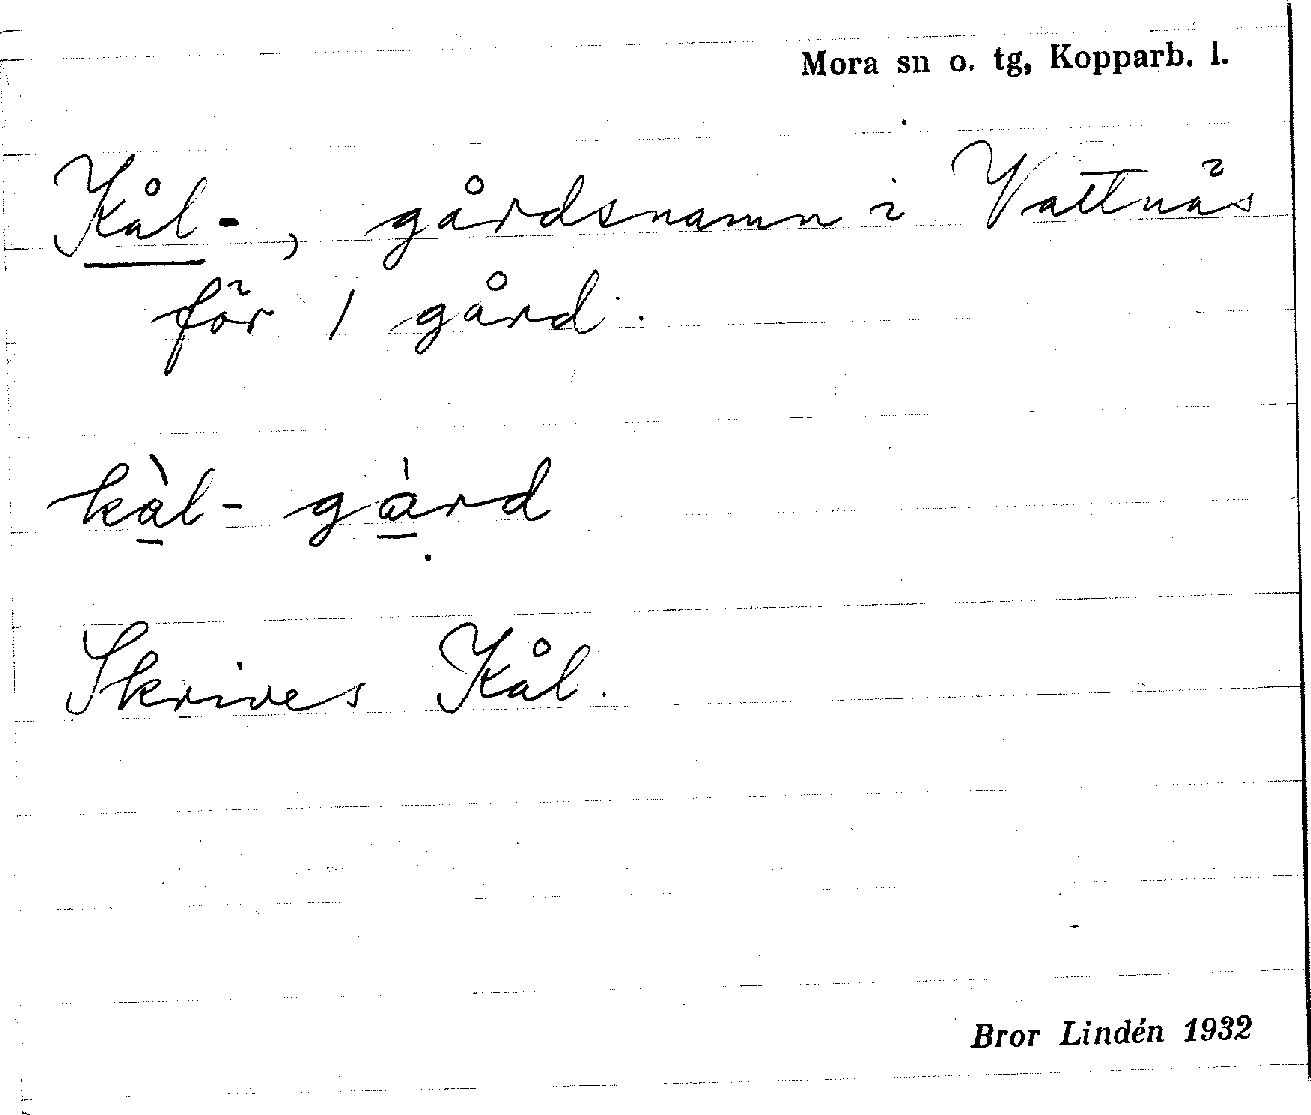 Mora sn o. tg, Kopparb. l.
Kål-, gårdsnamn i Vattnäs
för 1 gård.
kàl- gárd
Skrives Kål.
Bror Lindén 1932